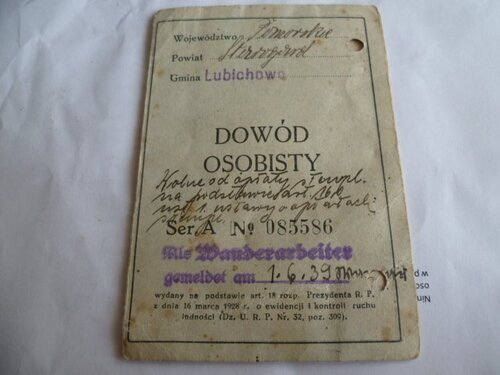 Województwo Pomorskie
Powiat Starogard
Gmina Lubichowo
DOWÓD
OSOBISTY
Wolne od opłaty stempl.
na podstawie art. 
ust. 1. ustawy o opłatach
stempl.
Ser. A № 085586
Als Wanderarbeiter
gemeldet am 1.6.39
wydany na podstawie art. 18 rozp. Prezydenta R. P.
z dnia 16 marca 1928 r. o ewidencji i kontroli ruchu
ludności (Dz. U. R. P. Nr. 32, poz. 309).
Nin
oso
w p